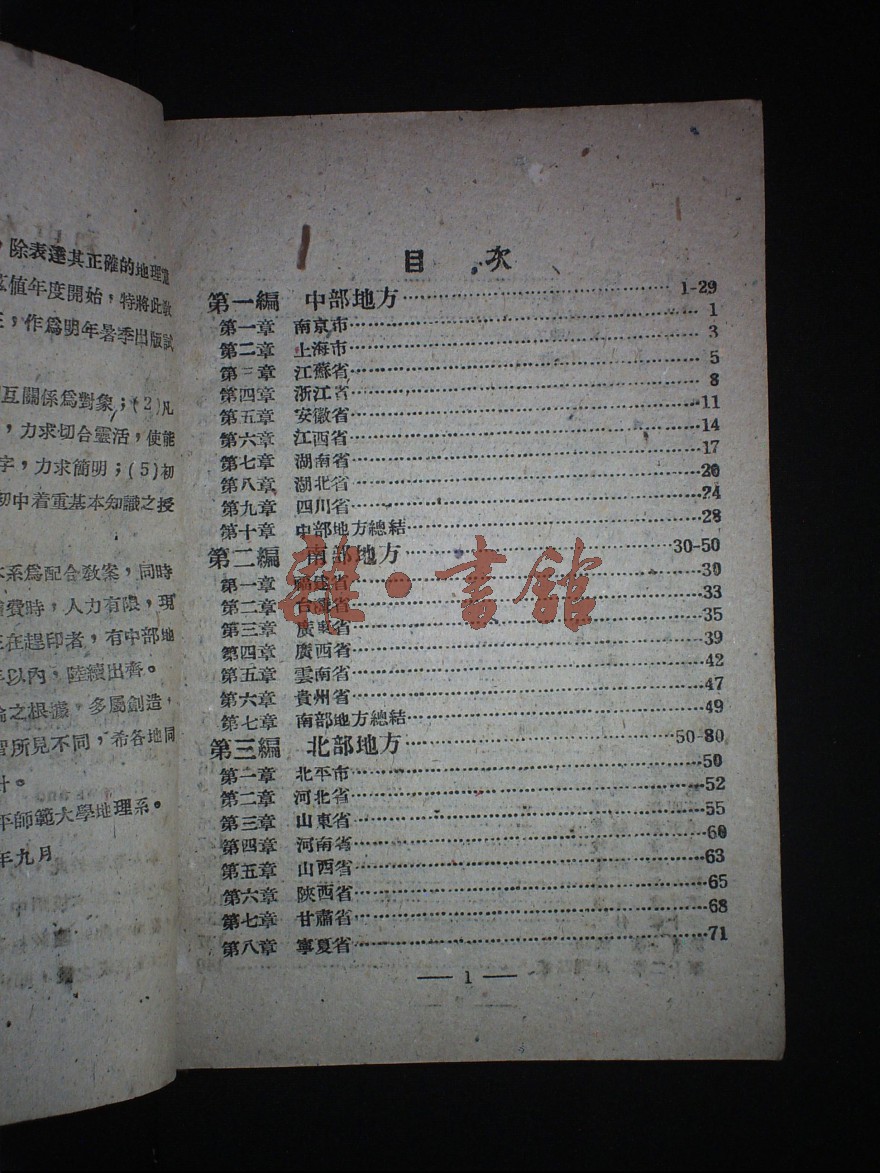 ，除表達其正確的地理
茲值年度開始，特將此教
，作爲明年暑季出版試
互關係爲對象；(2)凡
，力求切合靈活，使能
字，力求簡明；(5)初
初中着重基本知識之授
本系爲配合敎案，同時
繪費時，人力有限，現
正在趕印者，有中部地
年以內，陸續出齊。
論之根據，多屬創造，
智所見不同，希各地同
平師範大學地理系。
年九月
目 次
第一編 中部地方 1-29
第一章 南京市 1
第二章 上海市 3
第三章 江蘇省 5
第四章 浙江省 8
第五章 安徽省 11
第六章 江西省 14
第七章 湖南省 17
第八章 湖北省 20
第九章 四川省 24
第十章 中部地方總結 28
第二編 南部地方 30-50
第一章 福建省 30
第二章 台灣省 33
第三章 廣東省 35
第四章 廣西省 39
第五章 雲南省 42
第六章 貴州省 47
第七章 南部地方總結 49
第三編 北部地方 50-80
第一章 北平市 50
第二章 河北省 52
第三章 山東省 55
第四章 河南省 60
第五章 山西省 63
第六章 陝西省 65
第七章 甘肅省 68
第八章 寧夏省 71
— 1 —
雜·書館